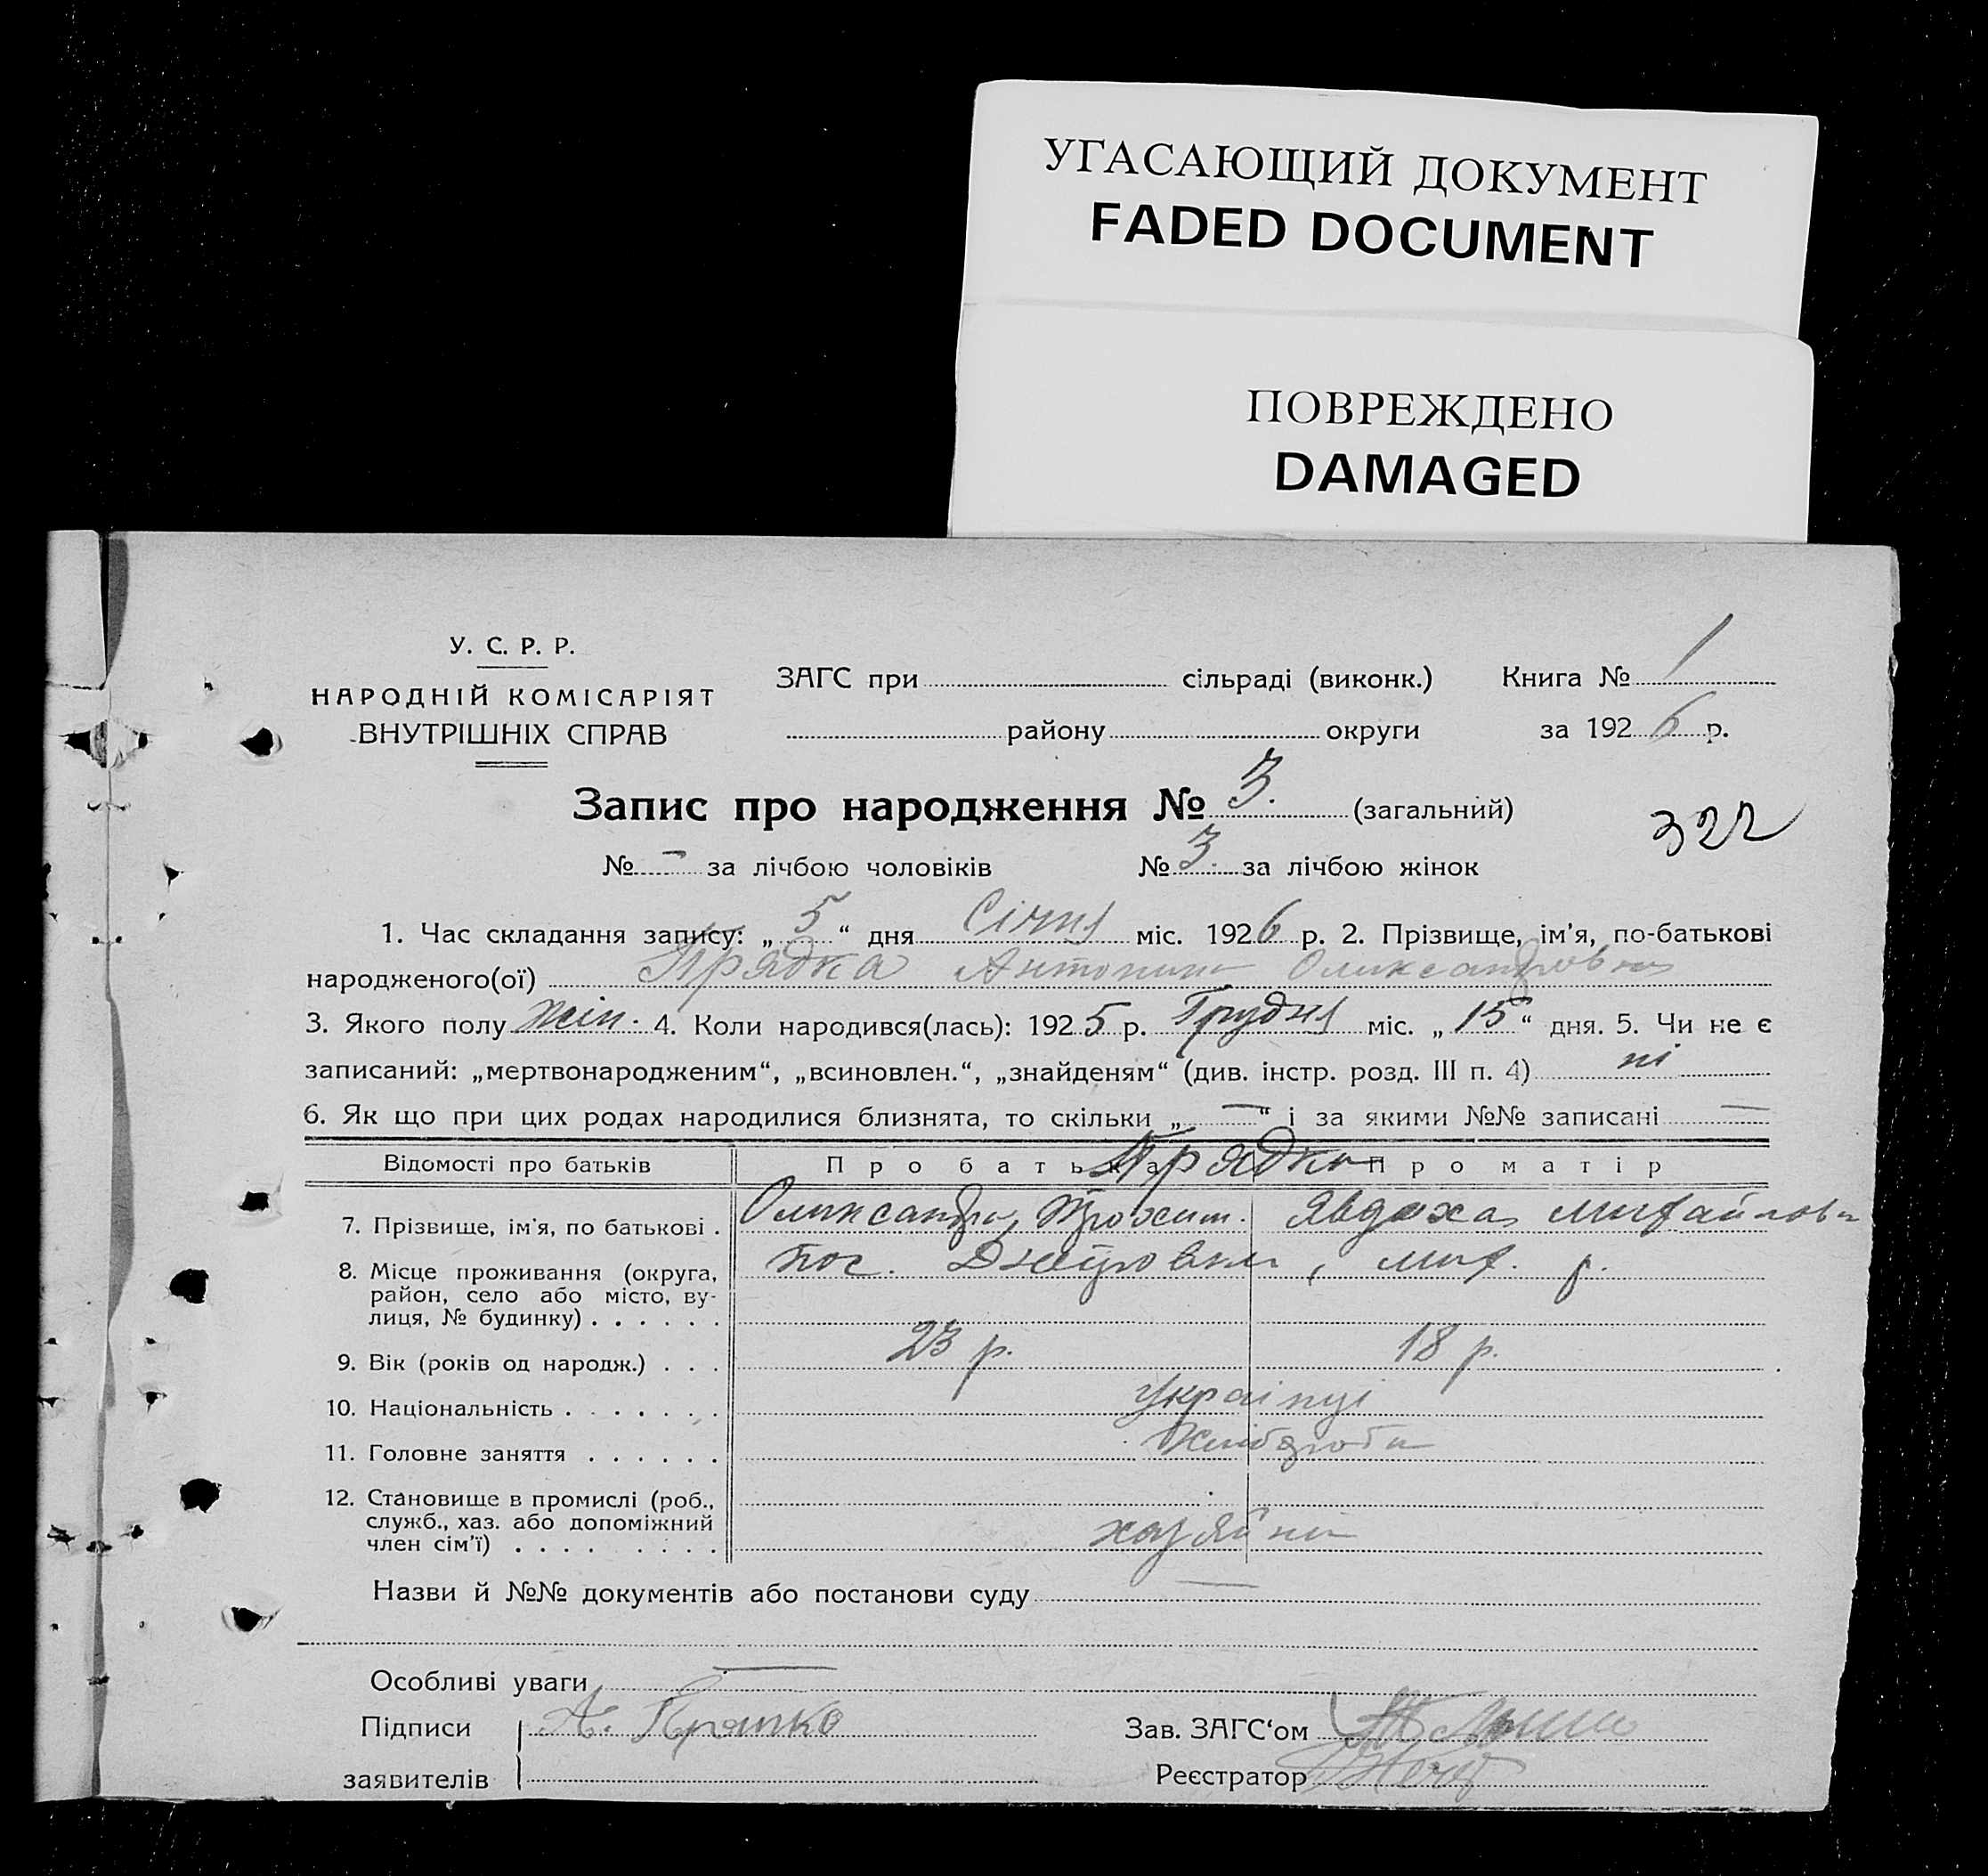 УГАСАЮЩИЙ ДОКУМЕНТ
FADED DOCUMENT
ПОВРЕЖДЕНО
DAMAGED
У. С. Р. Р.
НАРОДНІЙ КОМІСАРІЯТ
ВНУТРІШНІХ СПРАВ
ЗАГС при сільраді (виконк.) Книга № 1
району округи за 1926 р.
Запис про народження № 3. (загальний)
322
№ – за лічбою чоловіків № 3. за лічбою жінок
1. Час складання запису: „5“ дня Січня міс. 1926 р. 2. Прізвище, ім'я, по-батькові
народженого(ої) Прядка Антонина Олександровна
3. Якого полу жін. 4. Коли народився(лась): 1925 р. Грудня міс. „15“ дня. 5. Чи не є
записаний: „мертвонародженим“, „всиновлен.“, „знайденям“ (див. інстр. розд. III п. 4) ні
6. Як що при цих родах народилися близнята, то скільки „—“ і за якими №№ записані —
Відомості про батьків Про батька Про матір
Прядка
7. Прізвище, ім'я, по батькові . Олександр Явдоха Михайловн
8. Місце проживання (округа, пос. мих. р.
район, село або місто, ву-
лиця, № будинку) . . . . . .
9. Вік (років од народж.) . . . 23 р. 18 р.
10. Національність . . . . . . . Українці
11. Головне заняття . . . . . . Хлібороби
12. Становище в промислі (роб.,
служб., хаз. або допоміжний
член сім'ї) . . . . . . . . . хазяйни
Назви й №№ документів або постанови суду —
Особливі уваги —
Підписи А. Прятко Зав. ЗАГС‘ом
заявителів Реєстратор